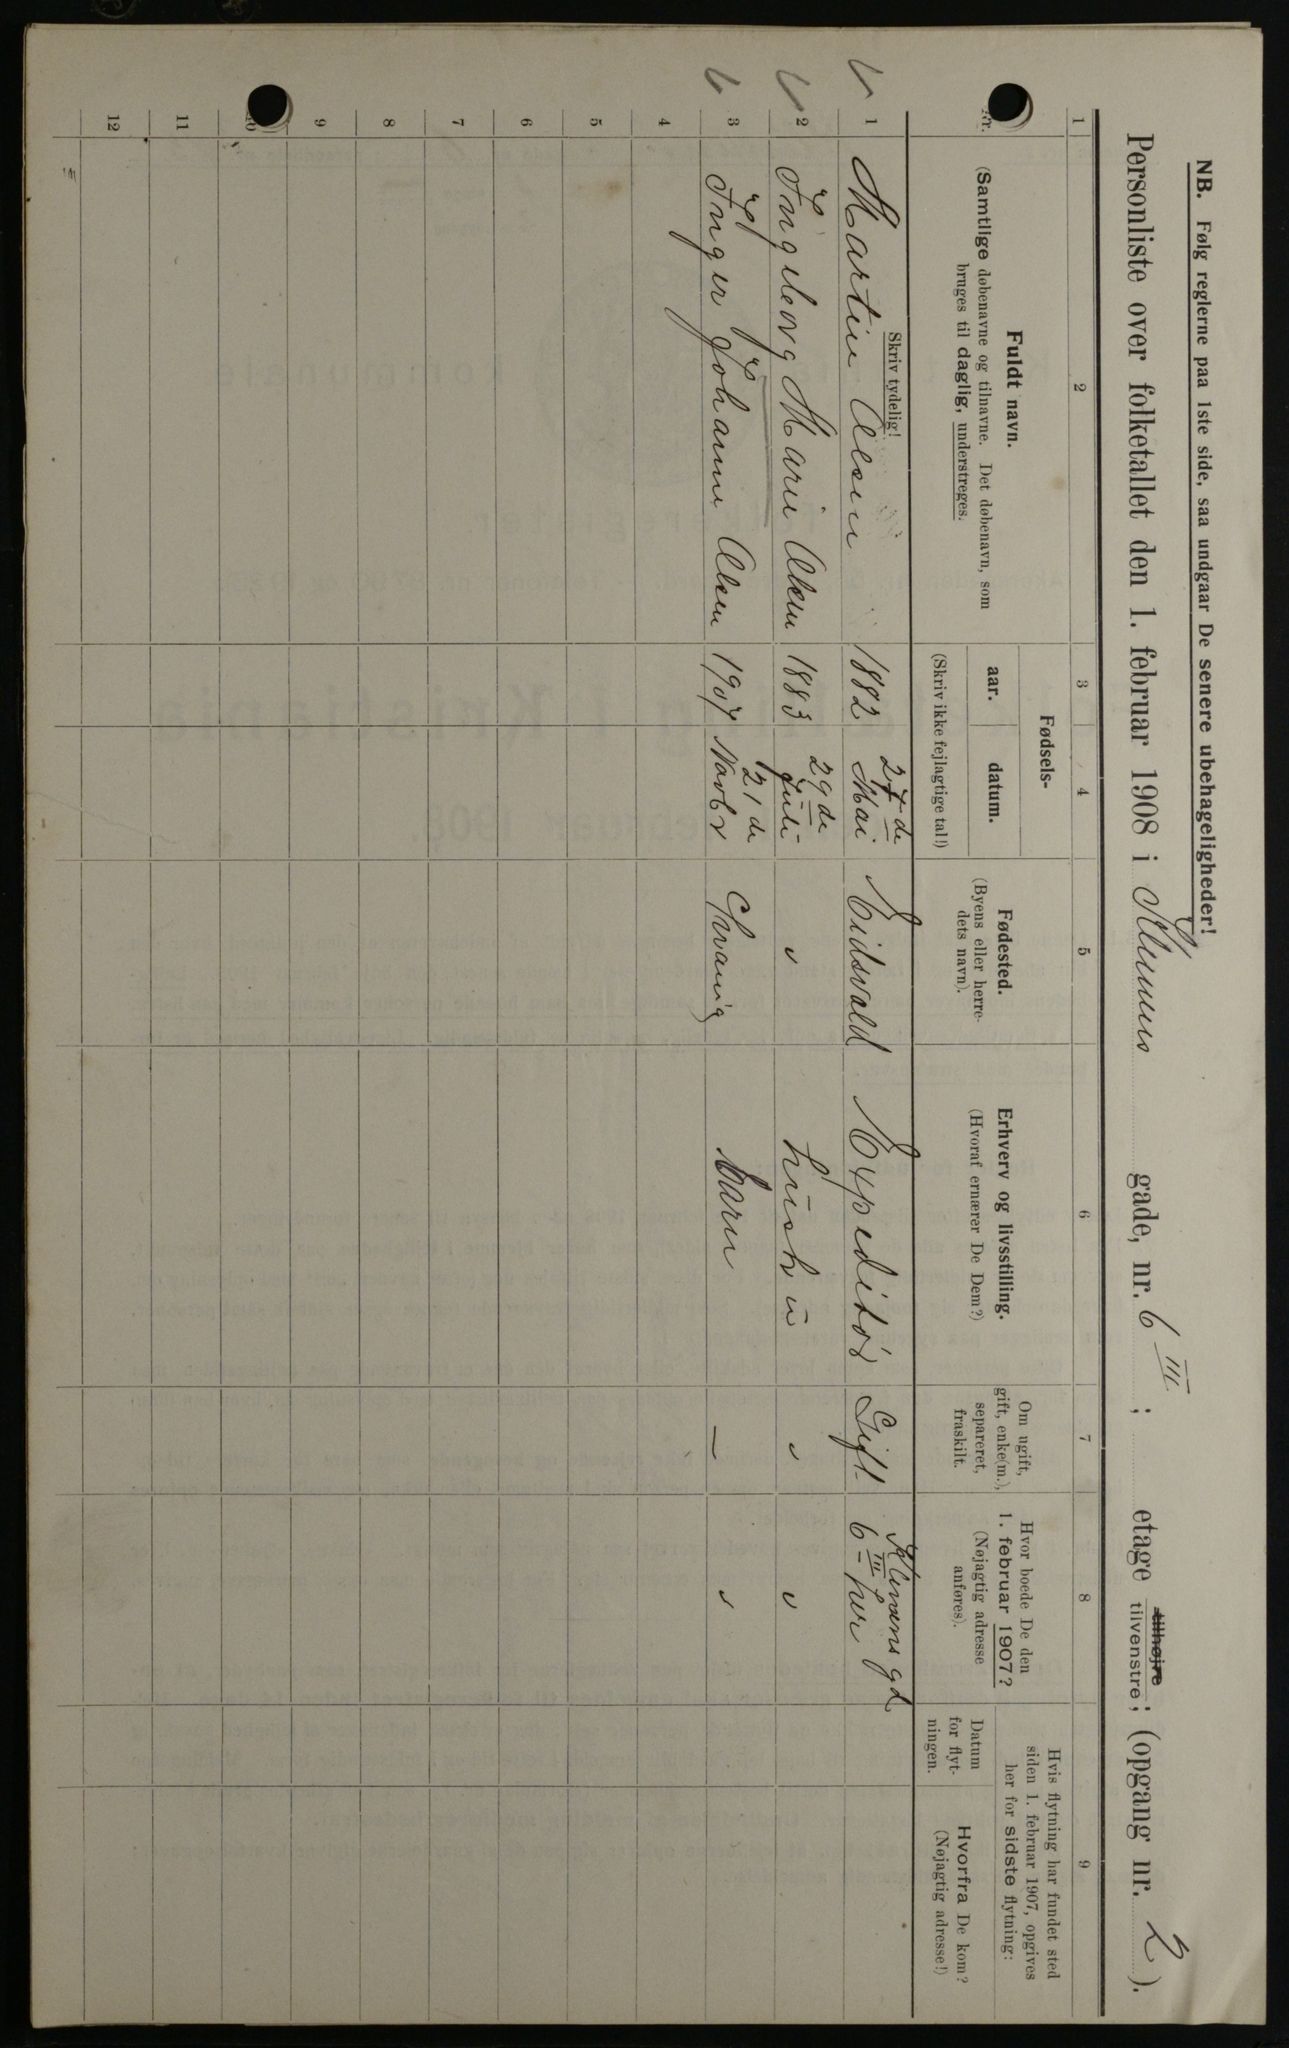 NB. Følg reglerne paa 1ste side, saa undgaar De senere ubehageligheder!
Personliste over folketallet den 1. februar 1908 i Klemens gade, nr. 6 III ; etage tilhøjre tilvenstre; (opgang nr. 2 ).
1 2 3 4 5 6 7 8 9
Nr. Fuldt navn. (Samtlige døbenavne og tilnavne. Det døbenavn, som bruges til daglig, understreges.
Fødsels- aar. datum. (Skriv ikke fejlagtige tal!)
Fødested. (Byens eller herredets navn).
Erhverv og livsstilling. (Hvoraf ernærer De Dem?)
Om ugift, gift, enke(m.), separeret, fraskilt.
Hvor boede De den 1. februar 1907? (Nøjagtig adresse anføres).
Hvis flytning har fundet sted siden 1. februar 1907, opgives her for sidste flytning:
Datum for flytningen.
Hvorfra De kom? (Nøjagtig adresse!)
Skriv tydelig!
1 Martin Olsen 1882 27de Mai Eidsvold Expeditør Gift Klemens gd 6 III her
2 Ingeborg Marie Olsen 1883 29de Juli " Hustru " "
3 Inger Johanne Olsen 1907 21de Novbr Chrania Barn — "
4
5
6
7
8
9
10
11
12